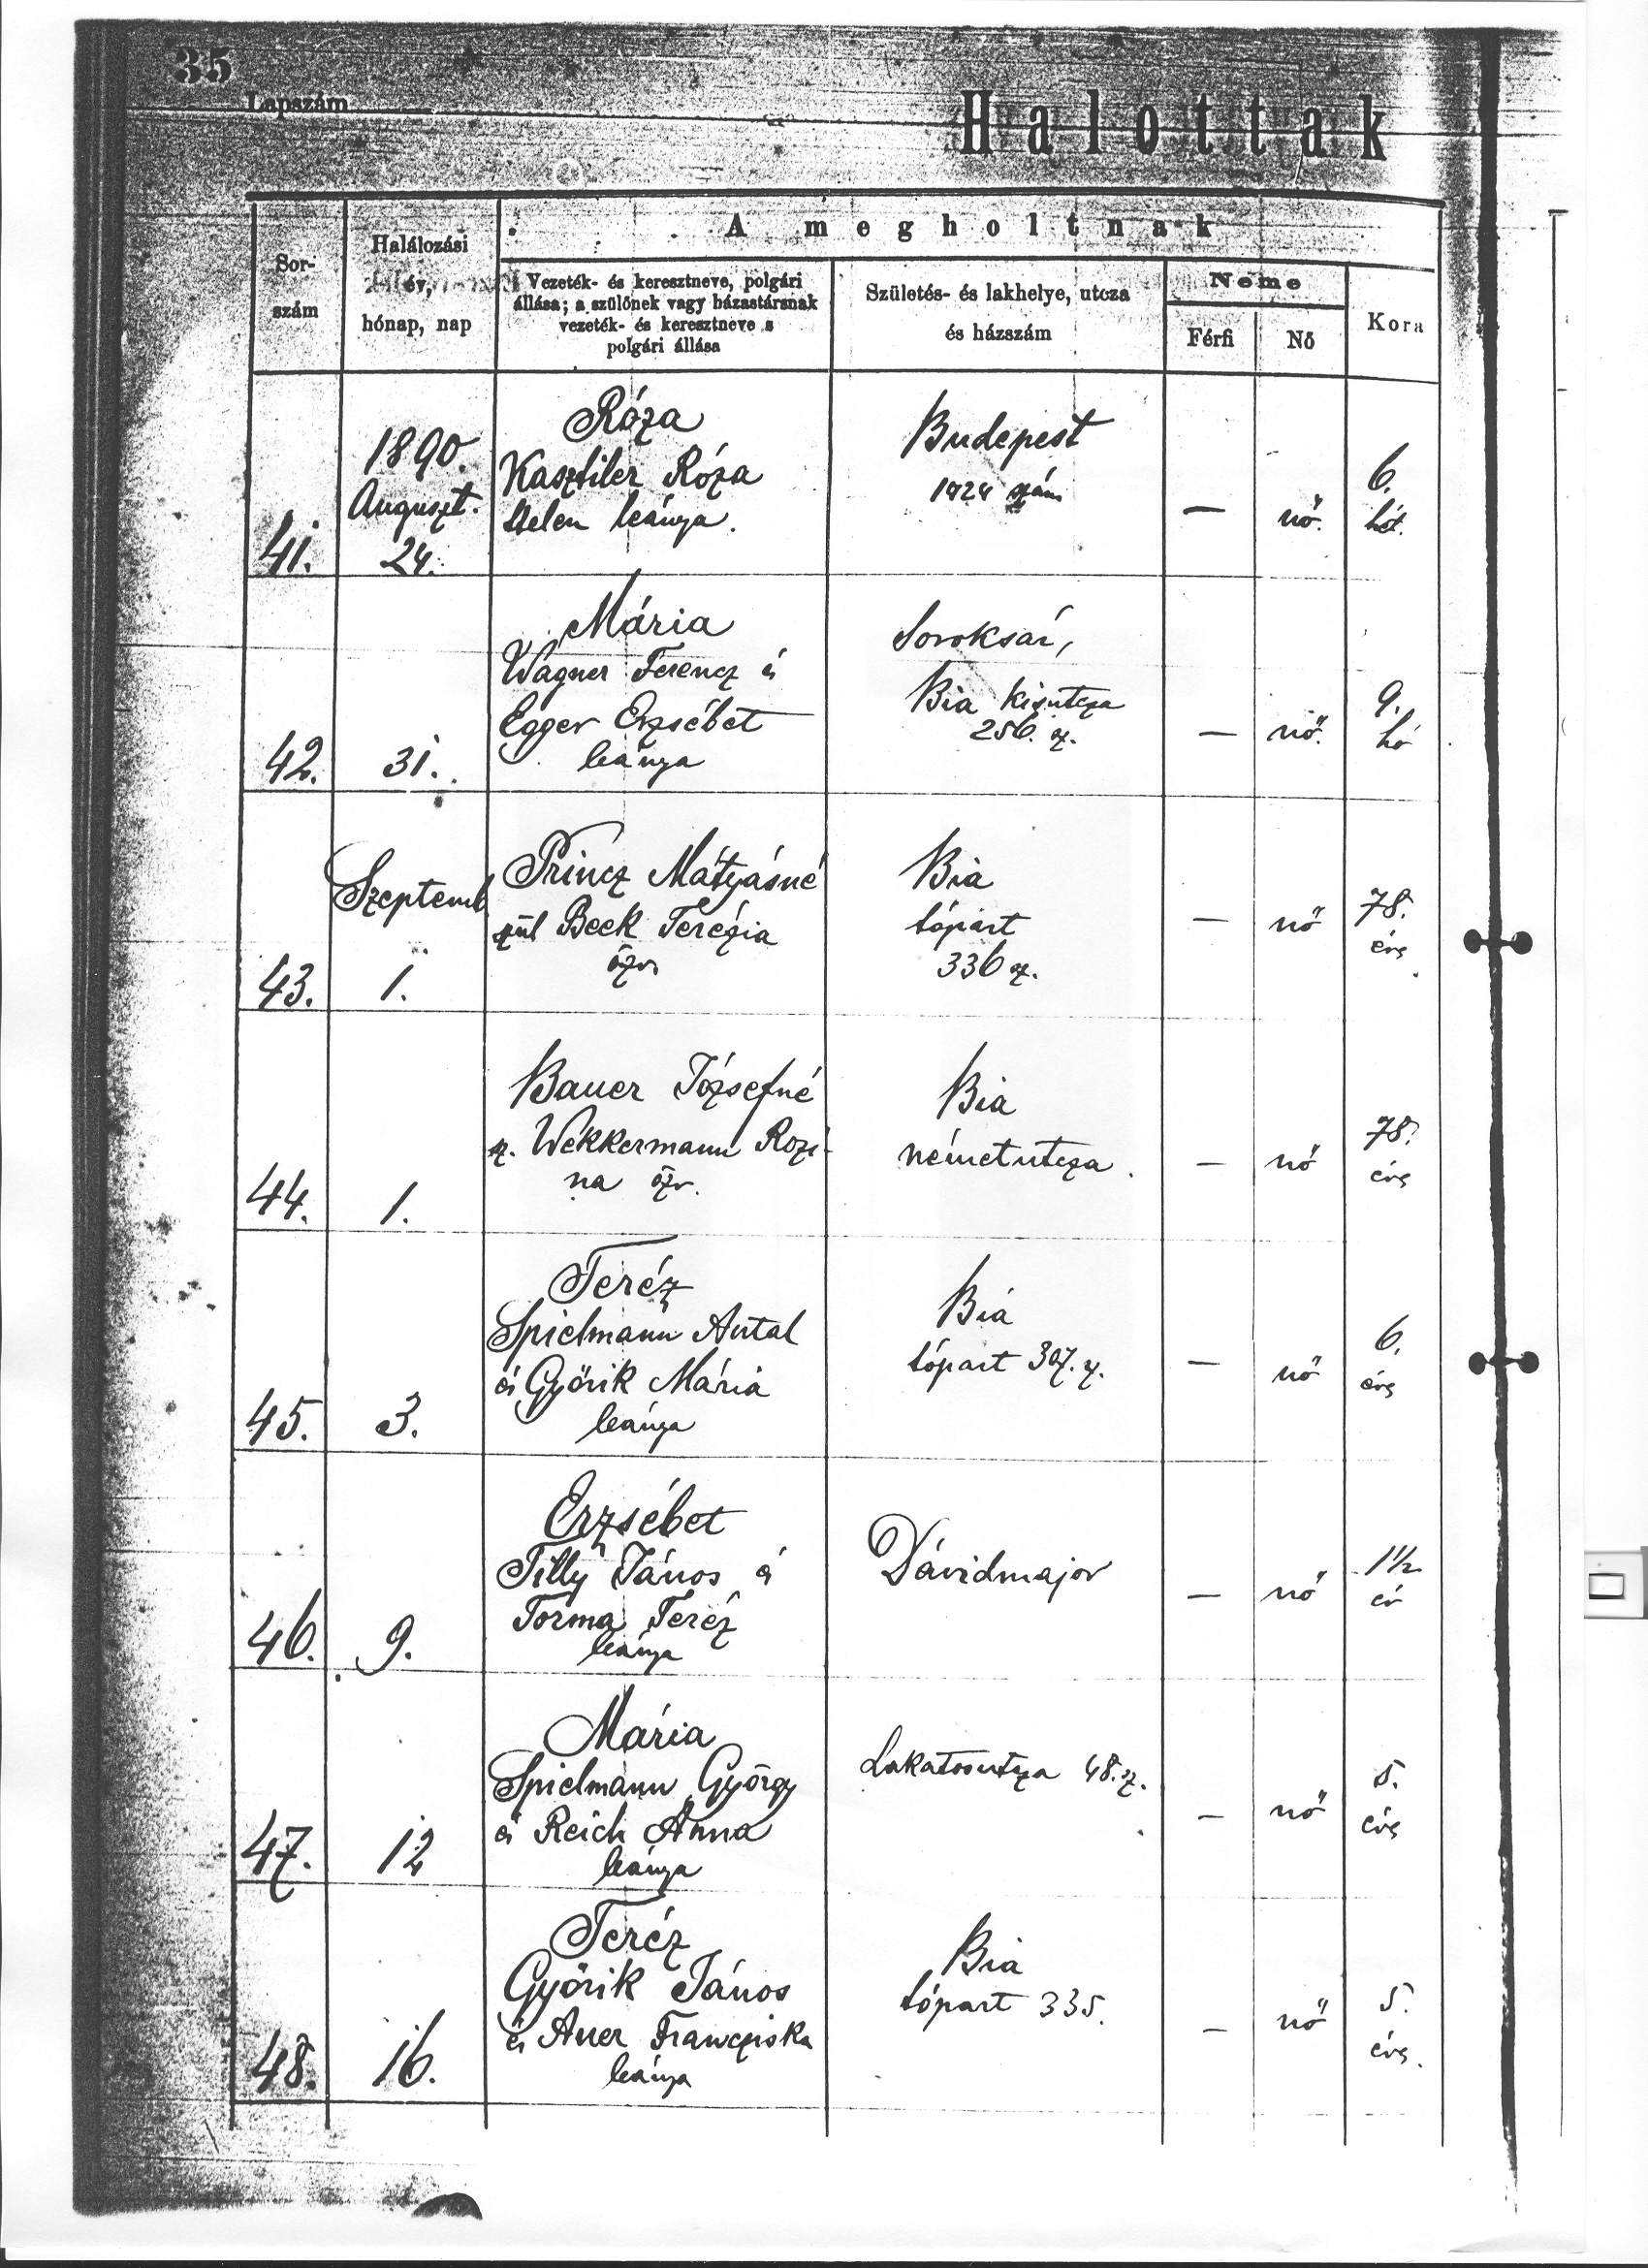 35
Lapszám
Halottak
A megholtnak
Sor-
szám
Halálozási
év,
hónap, nap
Vezeték- és keresztneve, polgári
állása; a szülőnek vagy házastársnak
vezeték- és keresztneve s
polgári állása
Születés- és lakhelye, utcza
és házszám
Neme
Férfi
Nő
Kora
41.
1890.
Auguszt.
24.
Róza
Kasztiler Róza
leánya.
Budapest
1924 szám
—
nő.
6.
hót.
42.
31.
Mária
Wágner Ferencz és
Egger Erzsébet
leánya
Soroksár,
Bia Kisutcza
256. sz.
—
nő.
9.
hó
43.
Szeptemb
1.
Princz Mátyásné
szül Beck Terézia
özv.
Bia
tópart
336 sz.
—
nő
78.
éves
44.
1.
Bauer Józsefné
sz. Wekkermann Rozi-
na özv.
Bia
németutcza.
—
nő
78.
éves
45.
3.
Teréz
Spielmann Antal
és Győrik Mária
leánya
Bia
tópart 307. sz.
—
nő
6.
éves
46.
9.
Erzsébet
Tilly János és
Torma Teréz
leánya
Dávidmajor
—
nő
1½
év
47.
12
Mária
Spielmann György
és Reich Anna
leánya
Lakatosutcza 48. sz.
—
nő
5.
éves
48.
16.
Teréz
Győrik János
és Auer Francziska
leánya
Bia
tópart 335.
—
nő
5.
éves.